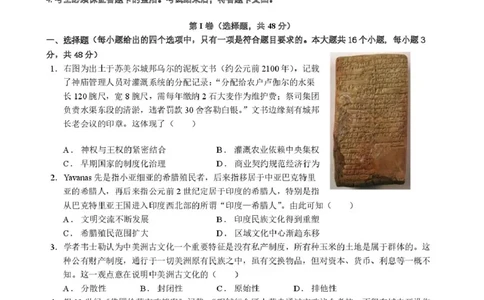 第Ⅰ卷(选择题，共 48 分)
一、选择题(每小题给出的四个选项中，只有一项是符合题目要求的。本大题共 16 个小题，每小题 3
分，共 48 分)
1． 右图为出土于苏美尔城邦乌尔的泥板文书(约公元前 2100 年)，记载
了神庙管理人员对灌溉系统的分配记录：“分配给农户卢伽尔的水渠
长 120 腕尺，宽 8 腕尺，需每年缴纳 2 石大麦作为维护费；祭司集团
负责水渠东段的清淤，违者罚款 30 舍客勒白银。”文书边缘刻有城邦
长老会议的印章。这体现了（ ）
A． 神权与王权的紧密结合 B． 灌溉农业依赖中央集权
C． 早期国家的制度化治理 D． 商业契约规范经济行为
2． Yavanas 先是指小亚细亚的希腊殖民者，后来指移居于中亚巴克特里
亚的希腊人，再后来指公元前 2 世纪定居于印度的希腊人，特别是指
从巴克特里亚王国进入印度西北部的所谓“印度—希腊人”。由此可知（ ）
A． 文明交流不断发展 B． 印度民族文化得到重塑
C． 希腊殖民范围扩大 D． 区域文化中心渐趋东移
3． 学者韦士勒认为中美洲古文化一个重要特征是没有私产制度，所有种玉米的土地是属于群体的。这
种公有财产制度，通行于一切美洲原有民族之中，虽有交换物品，但对资本、货币、利息等一概不
知。这一观点意在说明中美洲古文化的（ ）
A． 分散性 B． 封闭性 C． 原始性 D． 排他性